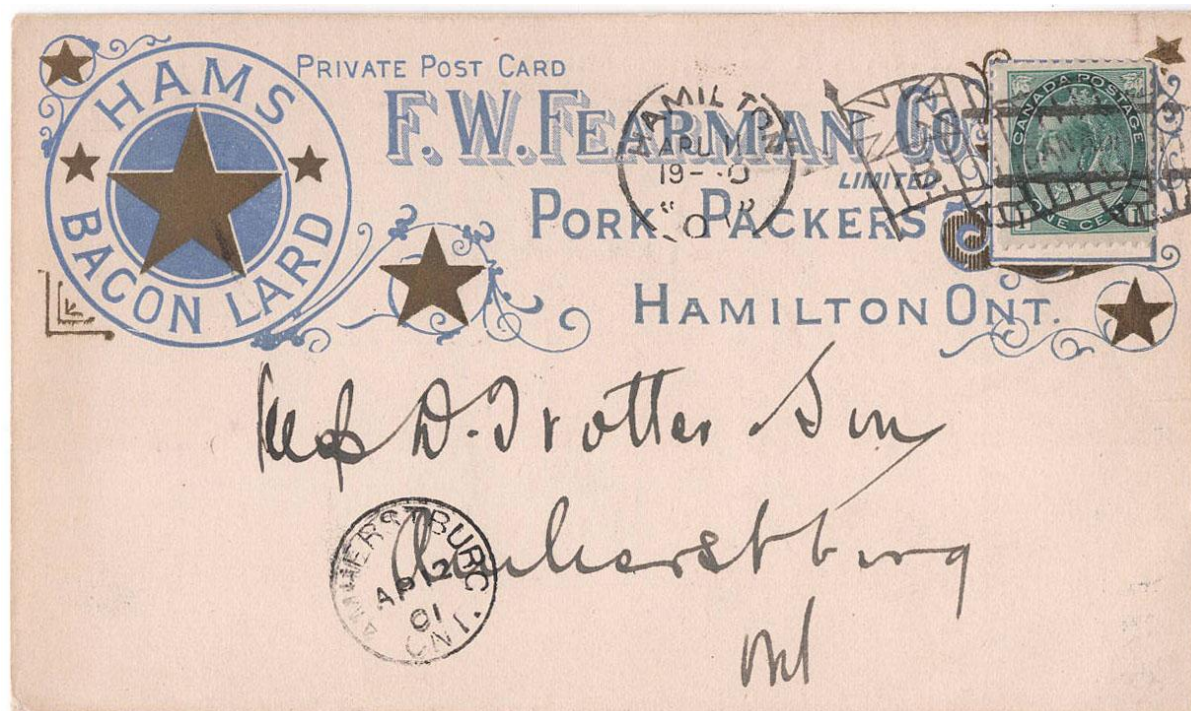 HAMS
BACON LARD
PRIVATE POST CARD
F. W. FEARMAN Co
LIMITED
PORK PACKERS
HAMILTON ONT.
HAMILTON
AP 11
19-0
0
CANADA POSTAGE
CANADA
ONE CENT
D. Trotter Son
Amherstburg
Ont
AMHERSTBURG
AP 12
01
ONT.